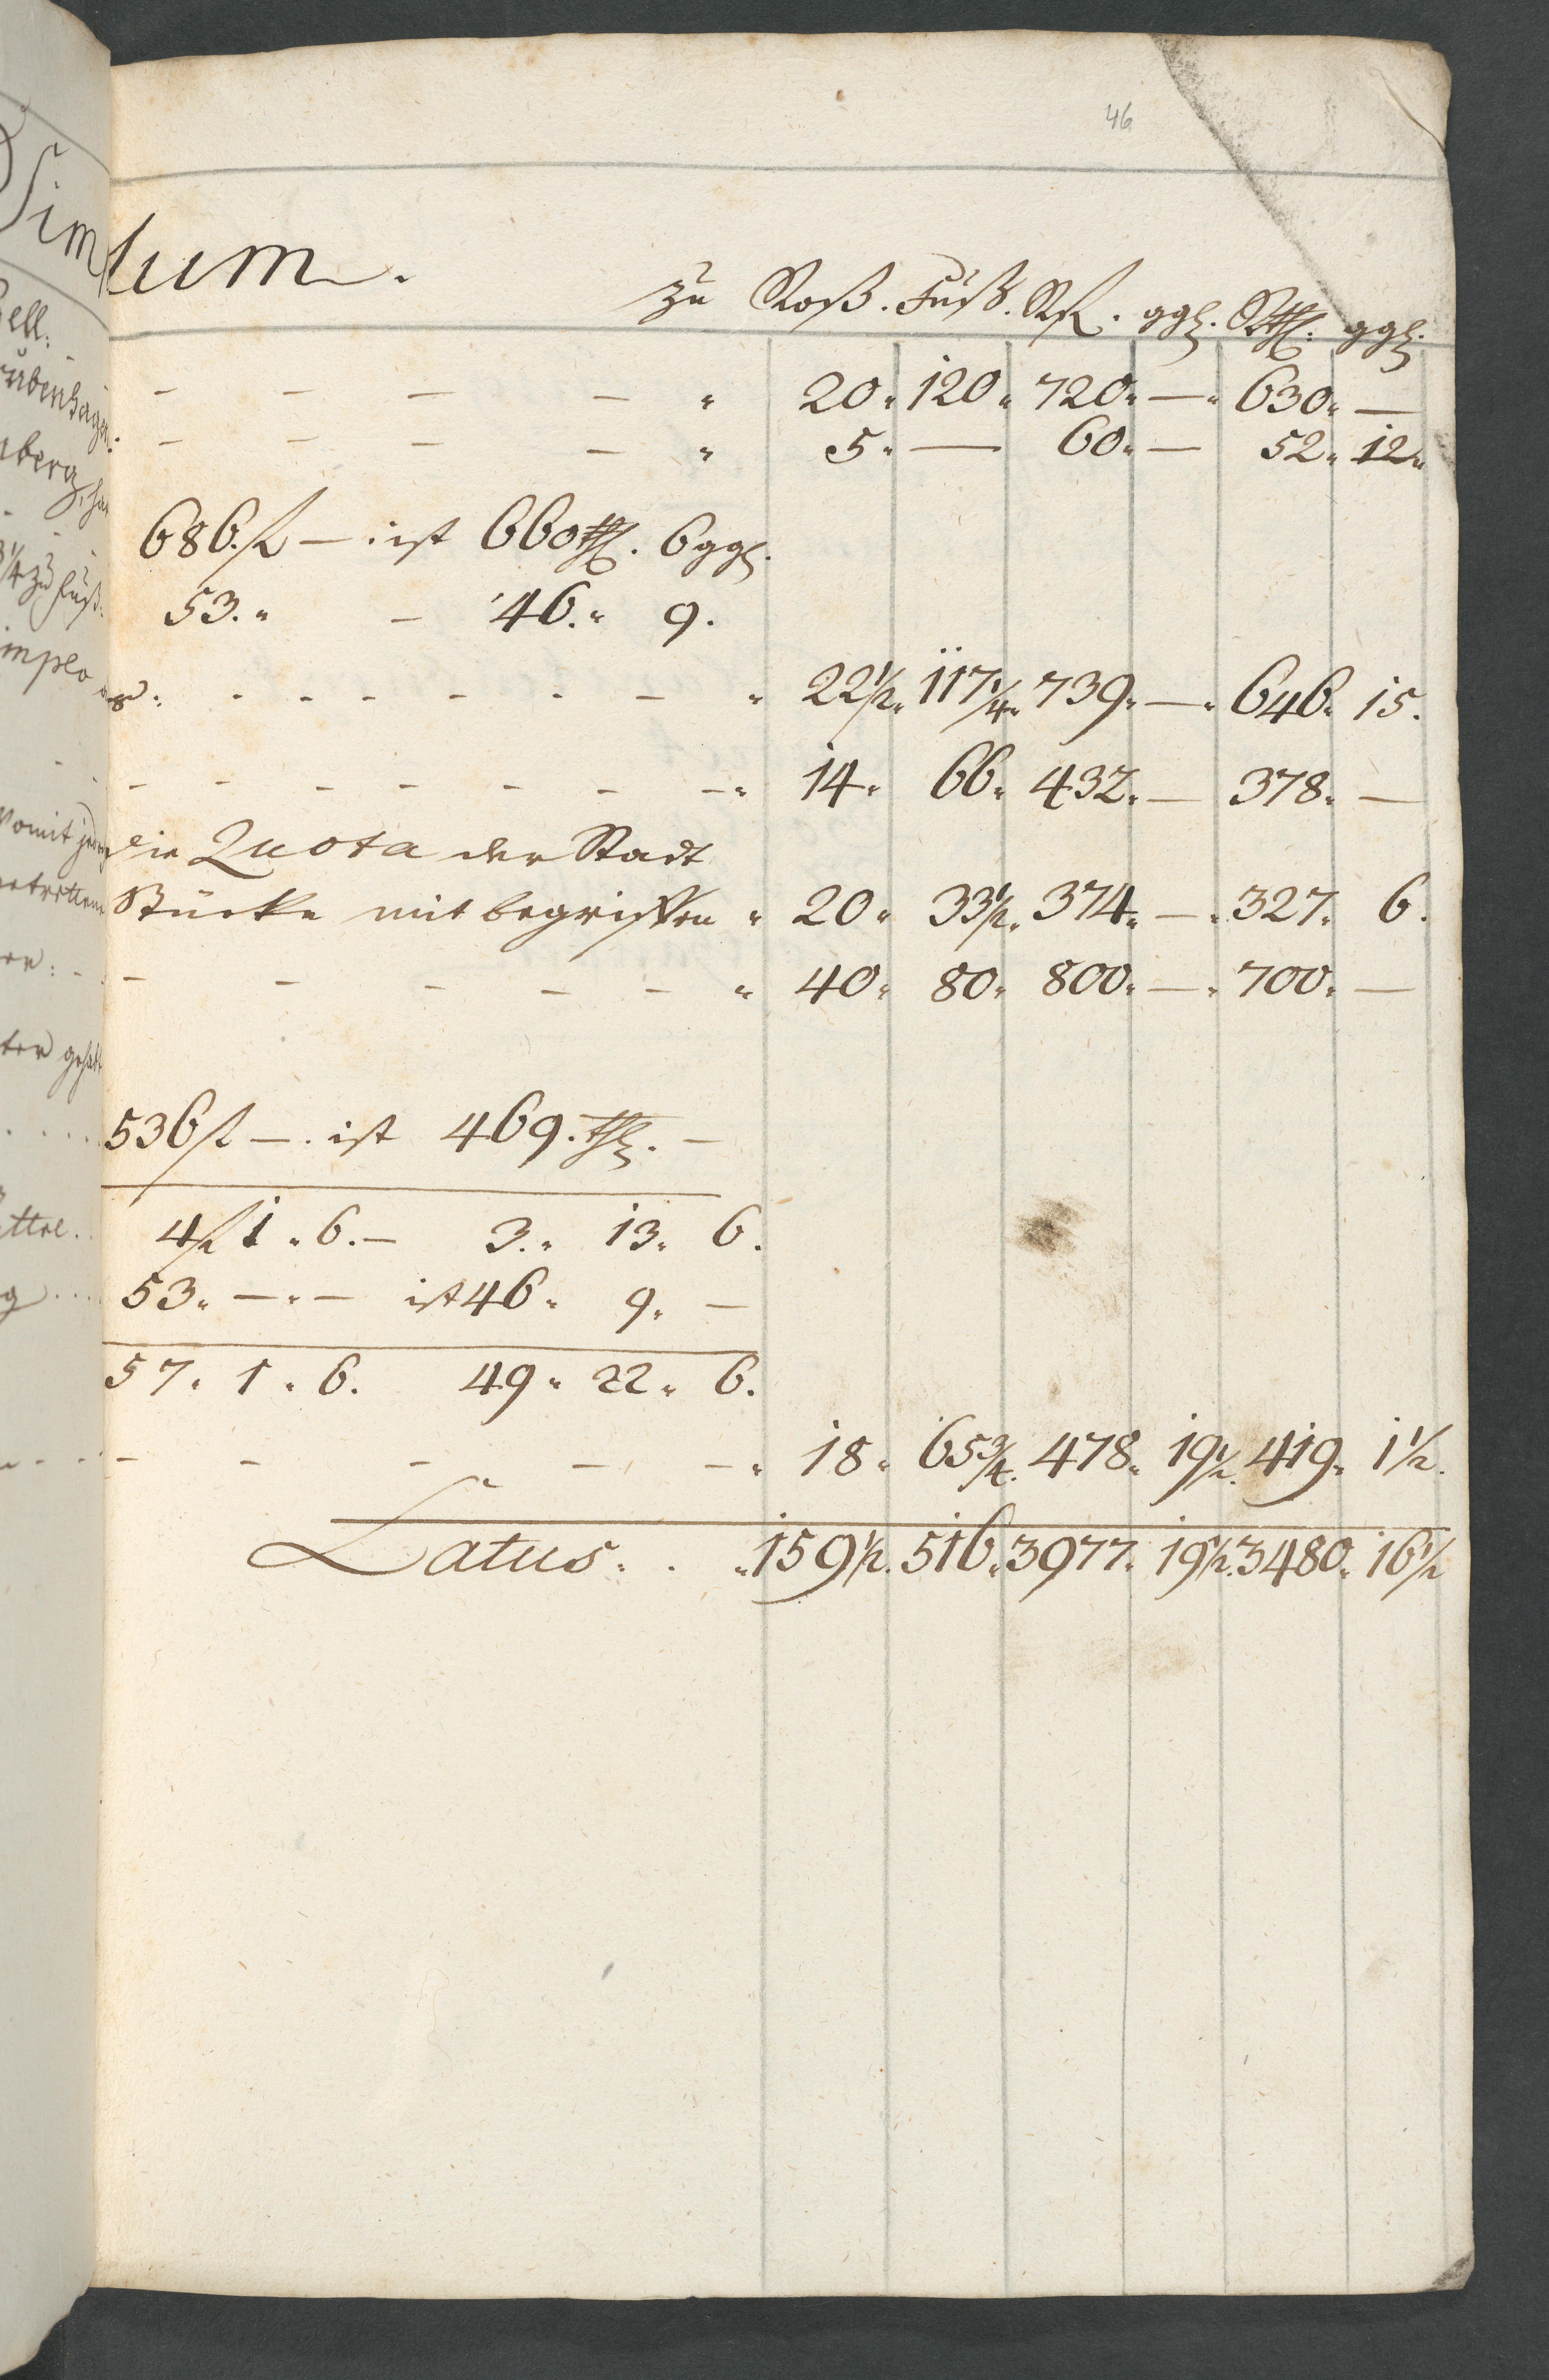 46
Sim
plum.
zu Roß. Fuß. Rfl. ggl. Rthl. ggl.
ell:
rubenhagen
- - - - " 20. 120. 720. —. 630. —
- - - - " 5. — 60. — 52. 12.
nberg,
686 fl — . ist 660 thl. 6 ggl.
¼ zu Fuß.
53. " - 46. " 9.
implo
- - - - " 22½. 117¼. 739. —. 646. 15.
- - - - - - - -" 14. 66. 432. — 378. —
womit
die Quota der Stadt
Stücke mit begriffen " 20. 33½. 374. —. 327. 6.
- - - - - " 40. 80. 800. —. 700. —
536 fl —. ist 469. thl. —
4 fl 1. 6. — 3. " 13. 6.
53. —. — ist 46. 9. —
57. 1. 6. 49. 22. 6.
- - - - -. 18. 65¾. 478. 19½. 419. 1½.
Latus. . . 159½. 516. 3977. 19½. 3480. 16½